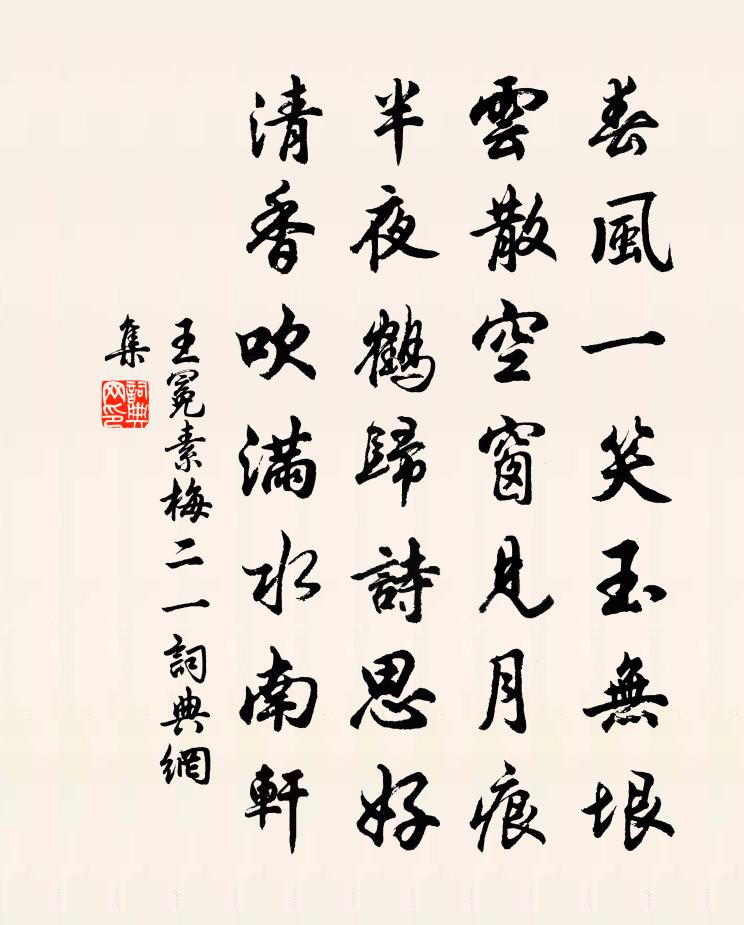 春風一笑玉無垠
雲散空窗見月痕
半夜鶴歸詩思好
清香吹滿水南軒
王冕素梅二一詞典網
集
詞典網印